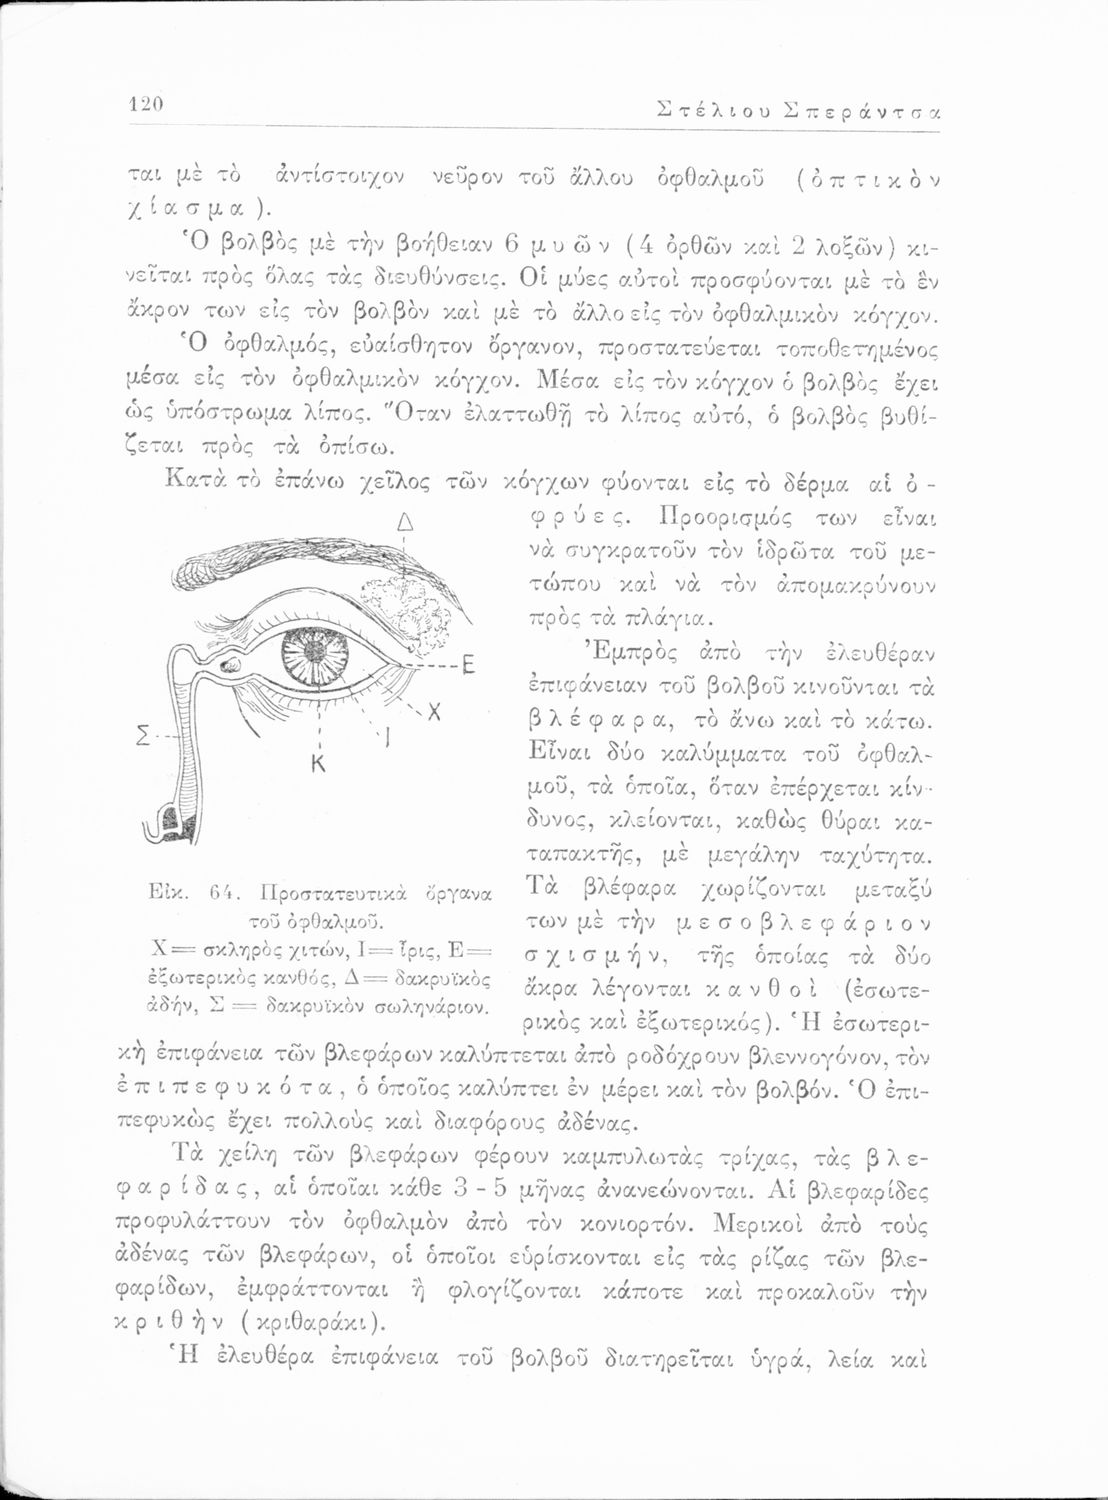 120
Στέλιου Σπεράντσα
ται μὲ τὸ ἀντίστοιχον νεῦρον τοῦ ἄλλου ὀφθαλμοῦ (ὀπτικὸν
χίασμα).
Ὁ βολβὸς μὲ τὴν βοήθειαν 6 μυῶν (4 ὀρθῶν καὶ 2 λοξῶν) κι-
νεῖται πρὸς ὅλας τὰς διευθύνσεις. Οἱ μύες αὐτοὶ προσφύονται μὲ τὸ ἓν
ἄκρον των εἰς τὸν βολβὸν καὶ μὲ τὸ ἄλλο εἰς τὸν ὀφθαλμικὸν κόγχον.
Ὁ ὀφθαλμός, εὐαίσθητον ὄργανον, προστατεύεται τοποθετημένος
μέσα εἰς τὸν ὀφθαλμικὸν κόγχον. Μέσα εἰς τὸν κόγχον ὁ βολβὸς ἔχει
ὡς ὑπόστρωμα λίπος. Ὅταν ἐλαττωθῇ τὸ λίπος αὐτό, ὁ βολβὸς βυθί-
ζεται πρὸς τὰ ὀπίσω.
Κατὰ τὸ ἐπάνω χεῖλος τῶν κόγχων φύονται εἰς τὸ δέρμα αἱ ὀ-
φρύες. Προορισμός των εἶναι
νὰ συγκρατοῦν τὸν ἱδρῶτα τοῦ με-
τώπου καὶ νὰ τὸν ἀπομακρύνουν
πρὸς τὰ πλάγια.
Ἐμπρὸς ἀπὸ τὴν ἐλευθέραν
ἐπιφάνειαν τοῦ βολβοῦ κινοῦνται τὰ
βλέφαρα, τὸ ἄνω καὶ τὸ κάτω.
Εἶναι δύο καλύμματα τοῦ ὀφθαλ-
μοῦ, τὰ ὁποῖα, ὅταν ἐπέρχεται κίν-
δυνος, κλείονται, καθὼς θύραι κα-
ταπακτῆς, μὲ μεγάλην ταχύτητα.
Τὰ βλέφαρα χωρίζονται μεταξύ
των μὲ τὴν μεσοβλεφάριον
σχισμήν, τῆς ὁποίας τὰ δύο
ἄκρα λέγονται κανθοὶ (ἐσωτε-
ρικὸς καὶ ἐξωτερικός). Ἡ ἐσωτερι-
Δ
Ε
Χ
Ι
Κ
Σ
Εἰκ. 64. Προστατευτικὰ ὄργανα
τοῦ ὀφθαλμοῦ.
Χ = σκληρὸς χιτών, Ι = ἶρις, Ε =
ἐξωτερικὸς κανθός, Δ = δακρυϊκὸς
ἀδήν, Σ = δακρυϊκὸν σωληνάριον.
κὴ ἐπιφάνεια τῶν βλεφάρων καλύπτεται ἀπὸ ροδόχρουν βλεννογόνον, τὸν
ἐπιπεφυκότα, ὁ ὁποῖος καλύπτει ἐν μέρει καὶ τὸν βολβόν. Ὁ ἐπι-
πεφυκὼς ἔχει πολλοὺς καὶ διαφόρους ἀδένας.
Τὰ χείλη τῶν βλεφάρων φέρουν καμπυλωτὰς τρίχας, τὰς βλε-
φαρίδας, αἱ ὁποῖαι κάθε 3 - 5 μῆνας ἀνανεώνονται. Αἱ βλεφαρίδες
προφυλάττουν τὸν ὀφθαλμὸν ἀπὸ τὸν κονιορτόν. Μερικοὶ ἀπὸ τοὺς
ἀδένας τῶν βλεφάρων, οἱ ὁποῖοι εὑρίσκονται εἰς τὰς ρίζας τῶν βλε-
φαρίδων, ἐμφράττονται ἢ φλογίζονται κάποτε καὶ προκαλοῦν τὴν
κριθὴν (κριθαράκι).
Ἡ ἐλευθέρα ἐπιφάνεια τοῦ βολβοῦ διατηρεῖται ὑγρά, λεία καὶ